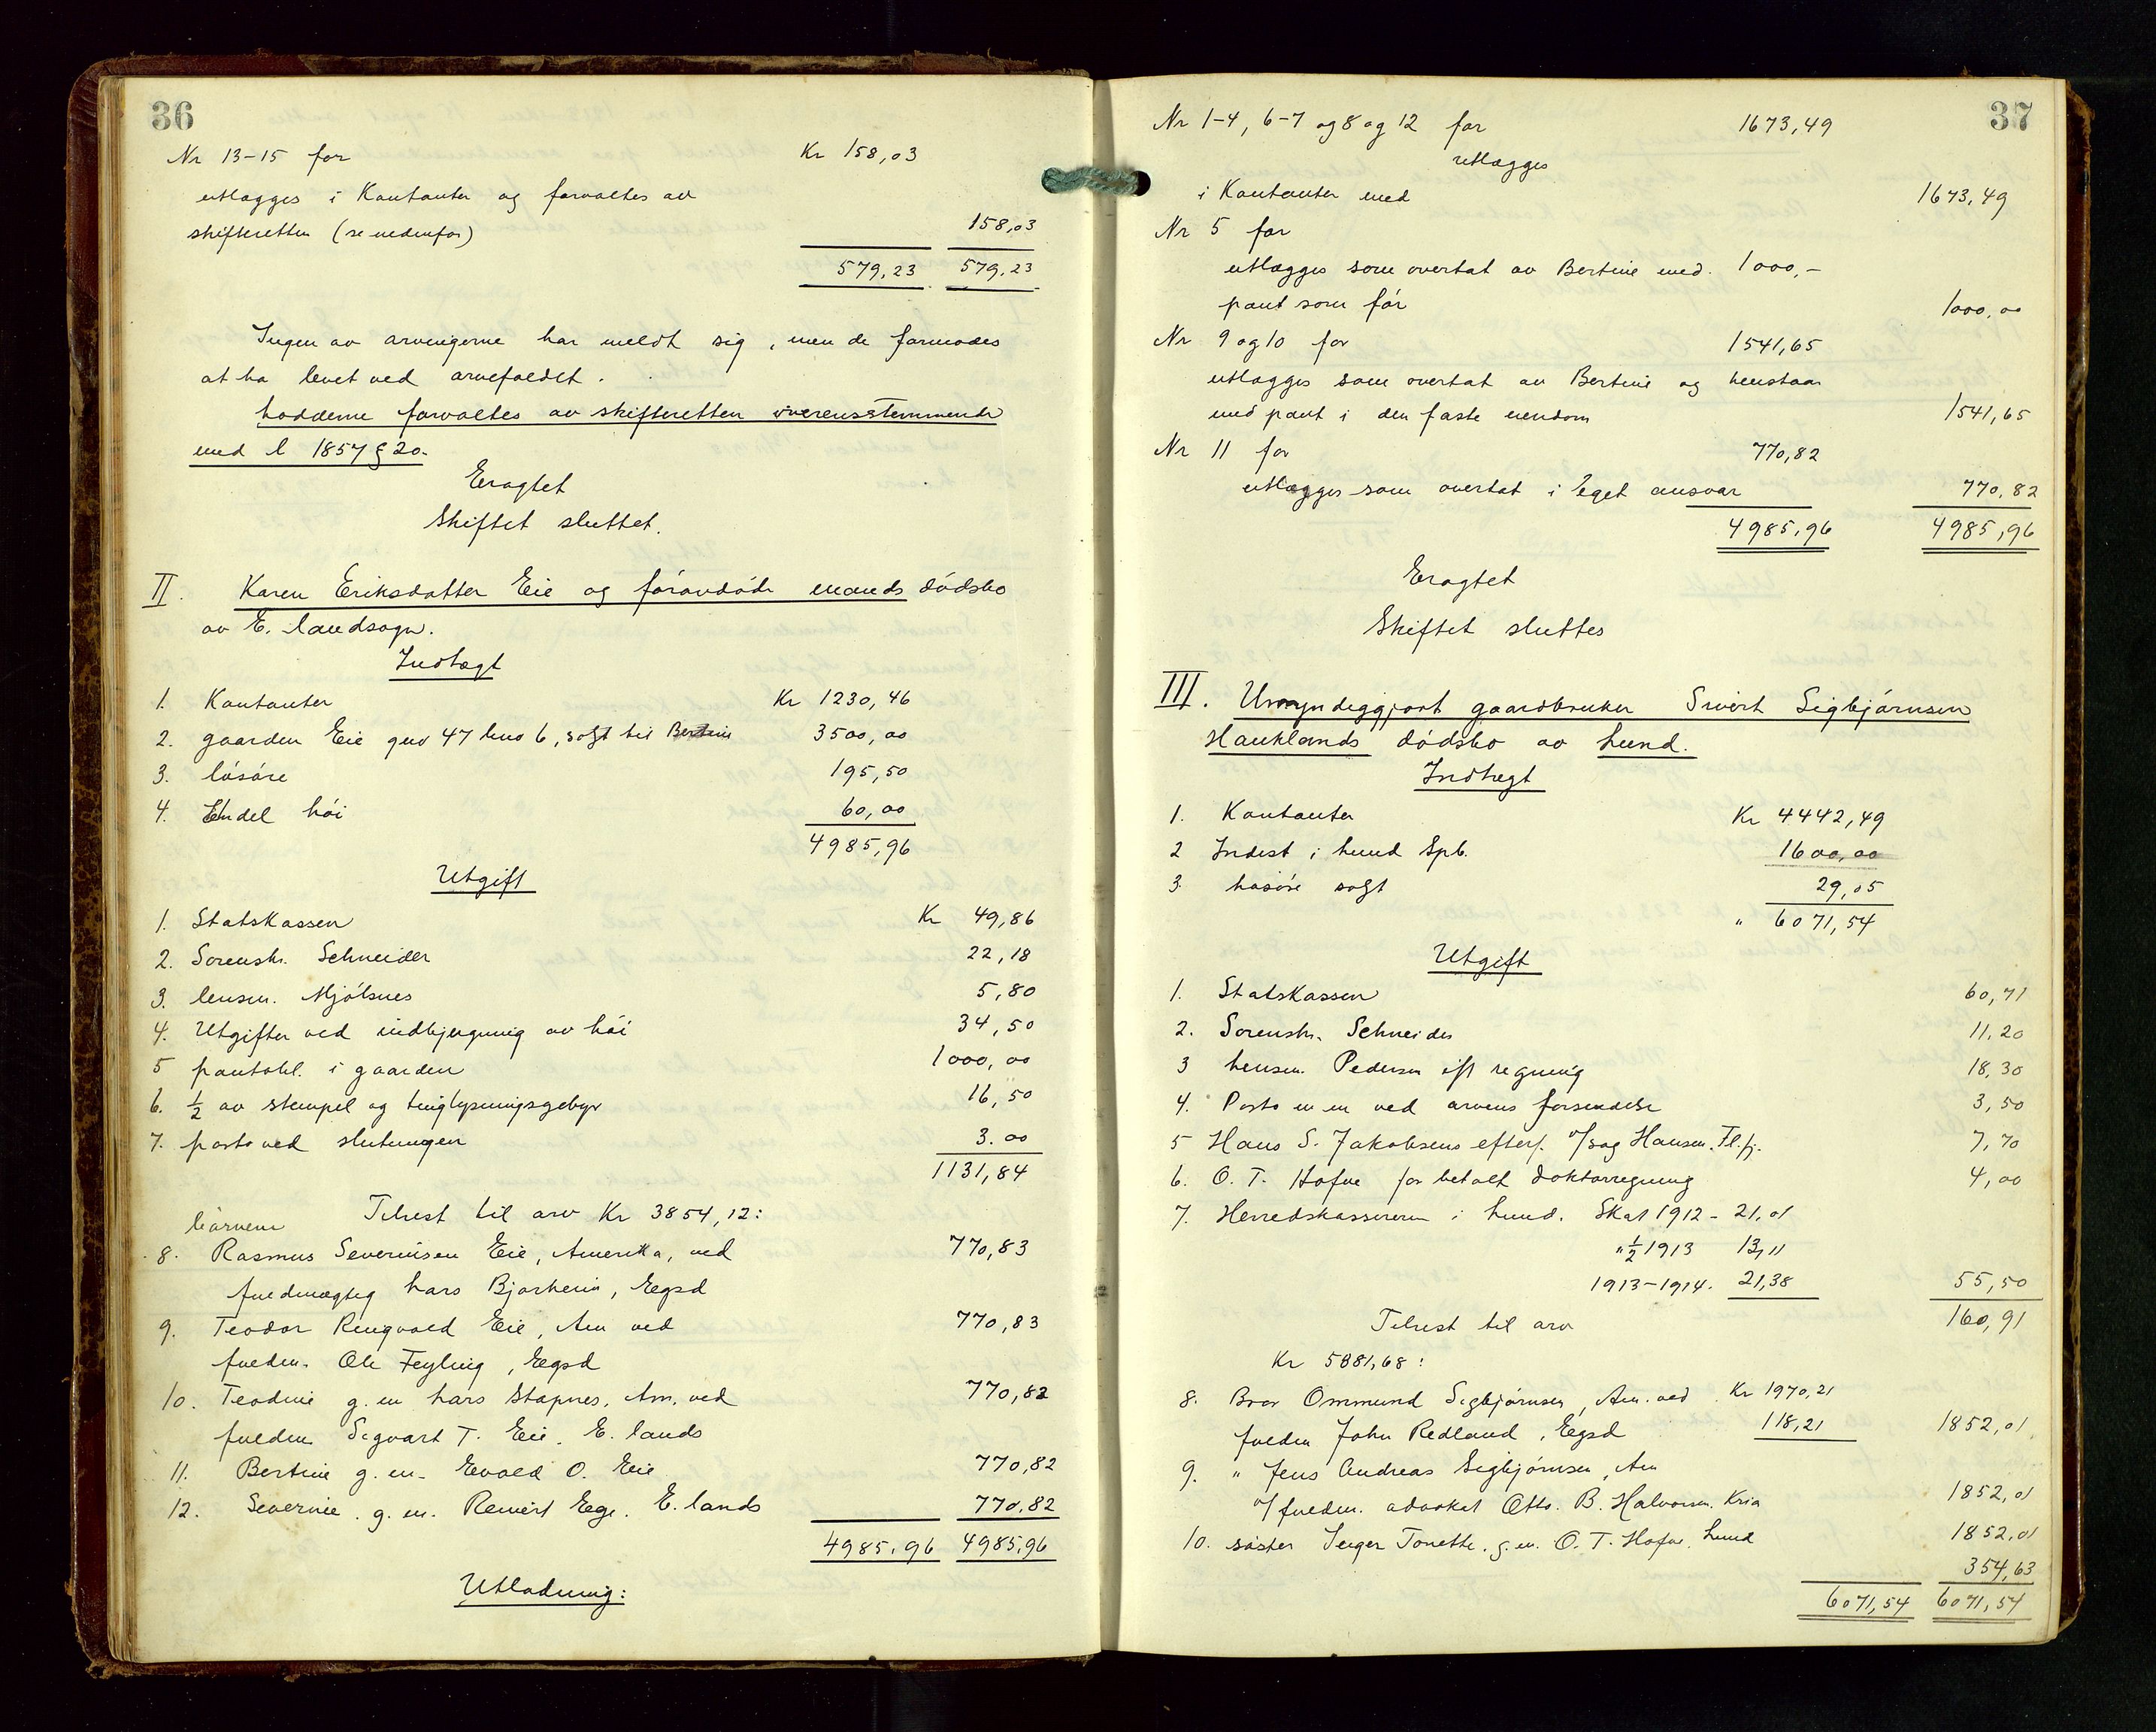 36
Nr 13-15 for Kr 158,03
utlægges i Kontanter og forvaltes av
skifteretten (se nedenfor) 158,03
579,23 579,23
Ingen av arvingerne har meldt sig, men de formodes
at ha levet ved arvefaldet.
Lodderne forvaltes av skifteretten overensstemmende
med l 1857 § 20.
Eragtet
Skiftet sluttet.
II. Karen Eriksdatter Eie og føravdøde mands dødsbo
av E. landsogn.
Indtægt
1. Kontanter Kr 1230,46
2. gaarden Eie gno 47 bno 6, solgt til Bertine 3500,00
3. løsøre 195,50
4. Endel høi 60,00
4985,96
Utgift
1. Statskassen Kr 49,86
2. Sorenskr. Schneider 22,18
3. lensm. Mjølsnes 5,80
4. Utgifter ved indbjergning av høi 34,50
5 pantobl. i gaarden 1000,00
6. ½ av stempel og tinglysningsgebyr 16,50
7. porto ved slutningen 3.00
1131,84
Tilrest til arv Kr 3854,12:
børnene
8. Rasmus Severinsen Eie, Amerika, ved 770,83
fuldmægtig Lars Bjarheim, Egsd
9. Teodor Ringvald Eie, Am ved 770,83
fuldm. Ole Feyling, Egsd
10. Teodine g. m. Lars Stapnes, Am. ved 770,82
fuldm Sigvart T. Eie, E. lands
11. Bertine g. m. Evald O. Eie 770,82
12. Severine g. m. Reinert Ege. E. lands 770,82
4985,96 4985,96
Utlodning:
37
Nr 1-4, 6-7 og 8 og 12 for 1673,49
utlægges
i Kontanter med 1673,49
Nr 5 for
utlægges som overtat av Bertine med. 1000,-
pant som før 1000,00
Nr 9 og 10 for 1541,65
utlægges som overtat av Bertine og henstaar
med pant i den faste eiendom 1541,65
Nr 11 for 770,82
utlægges som overtat i eget ansvar 770,82
4985,96 4985,96
Eragtet
Skiftet sluttes
III. Umyndiggjort gaardbruker Sivert Sigbjørnsen
Hauklands dødsbo av Lund.
Indtægt
1. Kontanter Kr 4442,49
2 Indest i Lund Spb. 1600,00
3. Løsøre solgt 29,05
" 6071,54
Utgift
1. Statskassen 60,71
2. Sorenskr. Schneider 11,20
3 Lensm. Pedersen ifl regning 18,30
4. Porto m m ved arvens forsendelse 3,50
5 Hans S. Jakobsens efterf. v/sag Hansen. Fl.fj. 7,70
6. O. T. Hofve for betalt doktorregning 4,00
7. Herredskassereren i Lund. Skat 1912 - 21,01
" ½ 1913 13,11
1913-1914. 21,38 55,50
Tilrest til arv 160,91
Kr 5881,68:
8. Bror Ommund Sigbjørnsen, Am. ved Kr 1970,21
fuldm John Redland, Egsd 118,21 1852,01
9. " Jens Andreas Sigbjørnsen, Am
v/ fuldm. advokat Otto. B. Halvorsen. Kria 1852,01
10. søster Inger Tonette. g. m. O. T. Hofve. Lund 1852,01
354,63
6071,54 6071,54